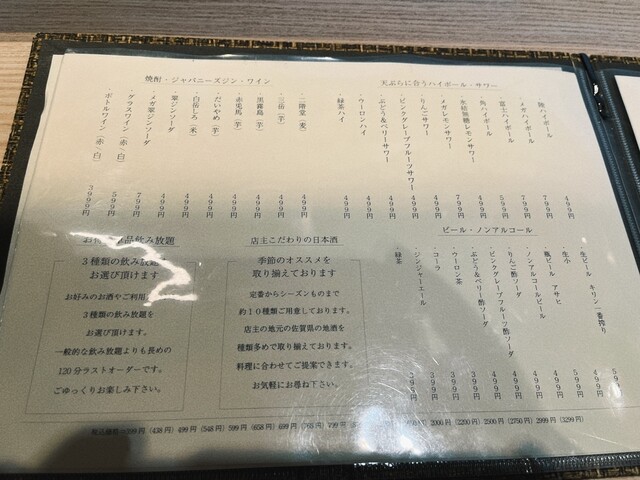 天ぷらに合うハイボール・サワー
・陸ハイボール 499円
・メガハイボール 799円
・富士ハイボール 599円
・角ハイボール 499円
・氷結無糖レモンサワー 499円
・メガレモンサワー 799円
・りんごサワー 499円
・ピンクグレープフルーツサワー 499円
・ぶどう&ベリーサワー 499円
・ウーロンハイ 499円
・緑茶ハイ 499円
焼酎・ジャパニーズジン・ワイン
・二階堂(麦) 499円
・三岳(芋) 499円
・黒霧島(芋) 499円
・赤兎馬(芋) 499円
・だいやめ(芋) 499円
・白岳しろ(米) 499円
・翠ジンソーダ 499円
・メガ翠ジンソーダ 799円
・グラスワイン(赤/白) 599円
・ボトルワイン(赤/白) 3999円
ビール・ノンアルコール
・生ビール キリン 一番搾り 599円
・生小 499円
・瓶ビール アサヒ 599円
・ノンアルコールビール 499円
・りんご酢ソーダ 499円
・ピンクグレープフルーツ酢ソーダ 499円
・ぶどう&ベリー酢ソーダ 499円
・ウーロン茶 399円
・コーラ 399円
・ジンジャーエール 399円
・緑茶 399円
店主こだわりの日本酒
季節のオススメを
取り揃えております
定番からシーズンものまで
約10種類ご用意しております。
店主の地元の佐賀県の地酒を
種類多めで取り揃えております。
料理に合わせてご提案できます。
お気軽にお尋ね下さい。
品飲み放題
3種類の飲み放題
お選び頂けます
お好みのお酒やご利用
3種類の飲み放題を
お選び頂けます。
一般的な飲み放題よりも長めの
120分ラストオーダーです。
ごゆっくりお楽しみ下さい。
399円 (438円) 499円 (548円) 599円 (658円) 699円 (768円) 799円 2000円 (2200円) 2500円 (2750円) 2999円 (3299円)